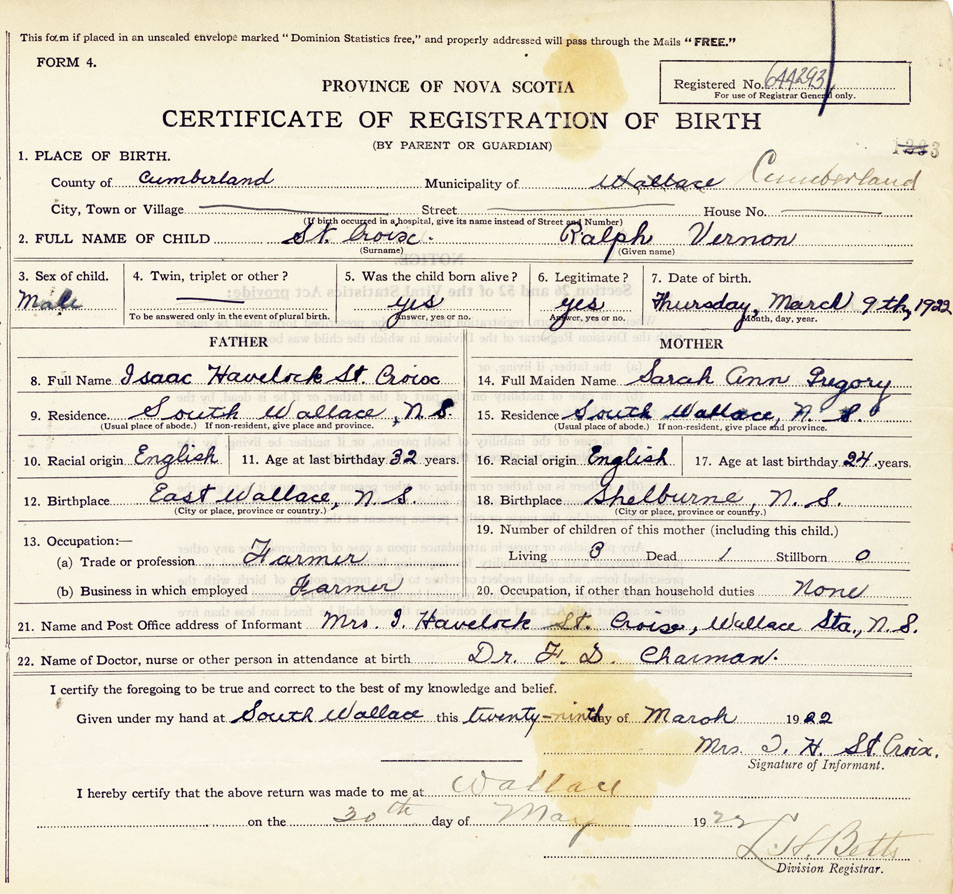 This form if placed in an unsealed envelope marked "Dominion Statistics free," and properly addressed will pass through the Mails "FREE."
FORM 4.
Registered No. 644293
For use of Registrar General only.
PROVINCE OF NOVA SCOTIA
CERTIFICATE OF REGISTRATION OF BIRTH
(BY PARENT OR GUARDIAN)
1. PLACE OF BIRTH.
County of Cumberland Municipality of Wallace Cumberland
City, Town or Village Street House No.
(If birth occurred in a hospital, give its name instead of Street and Number)
2. FULL NAME OF CHILD St. Croix. Ralph Vernon
(Surname) (Given name)
3. Sex of child. 4. Twin, triplet or other? 5. Was the child born alive? 6. Legitimate? 7. Date of birth.
Male yes yes Thursday, March 9th, 1922
To be answered only in the event of plural birth. Answer, yes or no. Answer, yes or no. Month, day, year.
FATHER MOTHER
8. Full Name Isaac Havelock St. Croix 14. Full Maiden Name Sarah Ann Gregory
9. Residence South Wallace, N.S. 15. Residence South Wallace, N.S.
(Usual place of abode.) If non-resident, give place and province. (Usual place of abode.) If non-resident, give place and province.
10. Racial origin English 11. Age at last birthday 32 years. 16. Racial origin English 17. Age at last birthday 24 years.
12. Birthplace East Wallace, N.S. 18. Birthplace Shelburne, N.S.
(City or place, province or country.) (City or place, province or country.)
13. Occupation:— 19. Number of children of this mother (including this child.)
(a) Trade or profession Farmer Living 3 Dead 1 Stillborn 0
(b) Business in which employed Farmer 20. Occupation, if other than household duties None
21. Name and Post Office address of Informant Mrs. I. Havelock St. Croix, Wallace Sta., N.S.
22. Name of Doctor, nurse or other person in attendance at birth Dr. F. D. Charman.
I certify the foregoing to be true and correct to the best of my knowledge and belief.
Given under my hand at South Wallace this twenty-ninth day of March 1922
Mrs. I. H. St. Croix.
Signature of Informant.
I hereby certify that the above return was made to me at Wallace
on the 30th day of May 1922
L. H. Betts
Division Registrar.